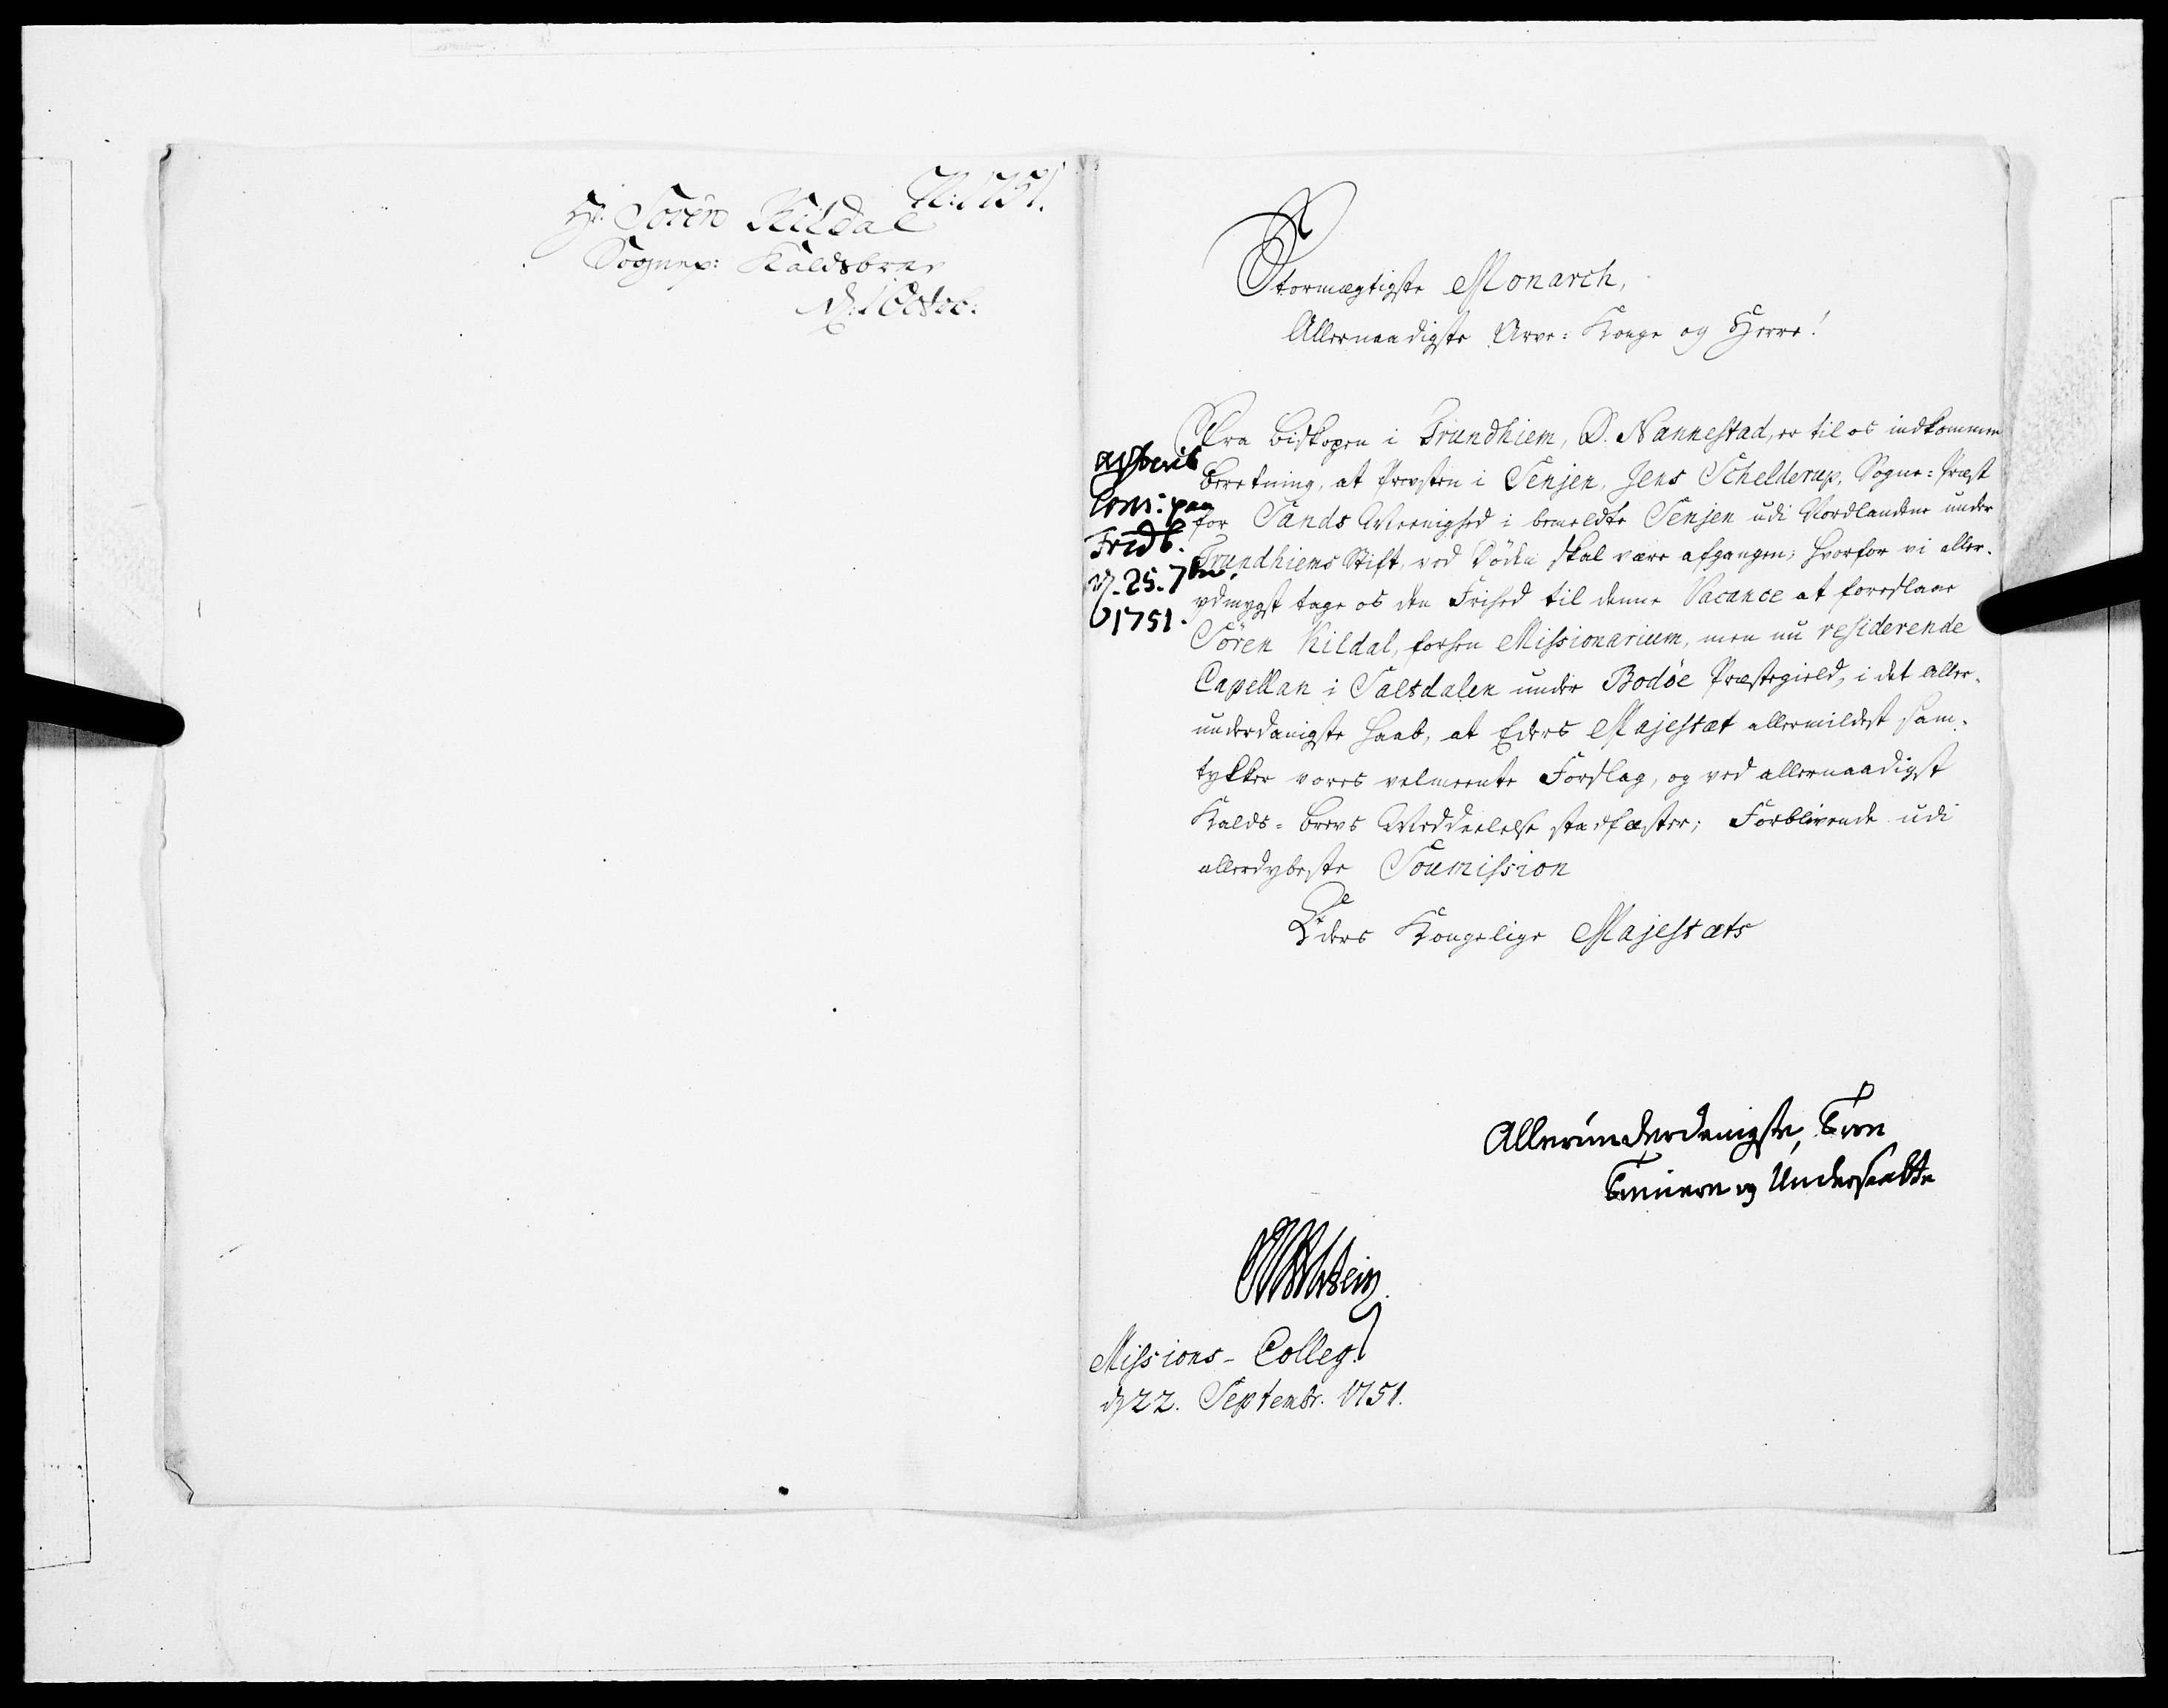 A: 1751.
Hr: Sören Kildal
Sognep: Kaldsbrev
d: 1 Octob:
Stormægtigste Monarch,
Allernaadigste Arve-Konge og Herre!
Fra Biskopen i Trundhiem, D. Nannestad, er til os indkommen
Beretning, at Provsten i Senjen, Jens Schelderup, Sogne-Præst
for Sands Meenighed i bemeldte Senjen udi Nordlandene under
Trundhiems Stift, ved Döden skal være afgangen; hvorfor vi aller-
ydmygst tage os den Frihed til denne Vacance at foreslaae
Sören Kildal, forhen Missionarium, men nu residerende
Capellan i Saltdalen under Bodöe Præstegield, i det aller-
underdanigste Haab, at Eders Majestæt allermildest sam-
tykker vores velmeente Forslag, og ved allernaadigst
Kalds-Brevs Meddeelelse stadfæster; Forblivende udi
allerdybeste Soumission
Eders Kongelige Majestæts
Cons: paa
Fridb.
d. 25. 7br.
1751.
Allerunderdanigste, Troe
Tienere og Undersaatte
Holstein
Missions-Colleg:
d 22. Septembr. 1751.